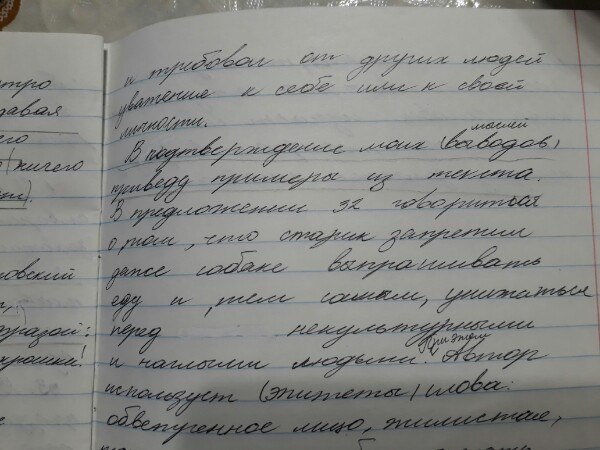 тро
давая
его
(ничего
и требовал от других людей
уважение к себе или к своей
личности.
мыслей
В подтверждение моих (выводов)
приведу примеры из текста.
В предложении 32 говориться
о том, что старик запретил
даже собаке выпрашивать
еду и, тем самым, унижаться
перед некультурными
и наглыми людьми. При этом Автор
использует (эпитеты) слова:
обветренное лицо, жилистая,
овский
фразой:
крошки!